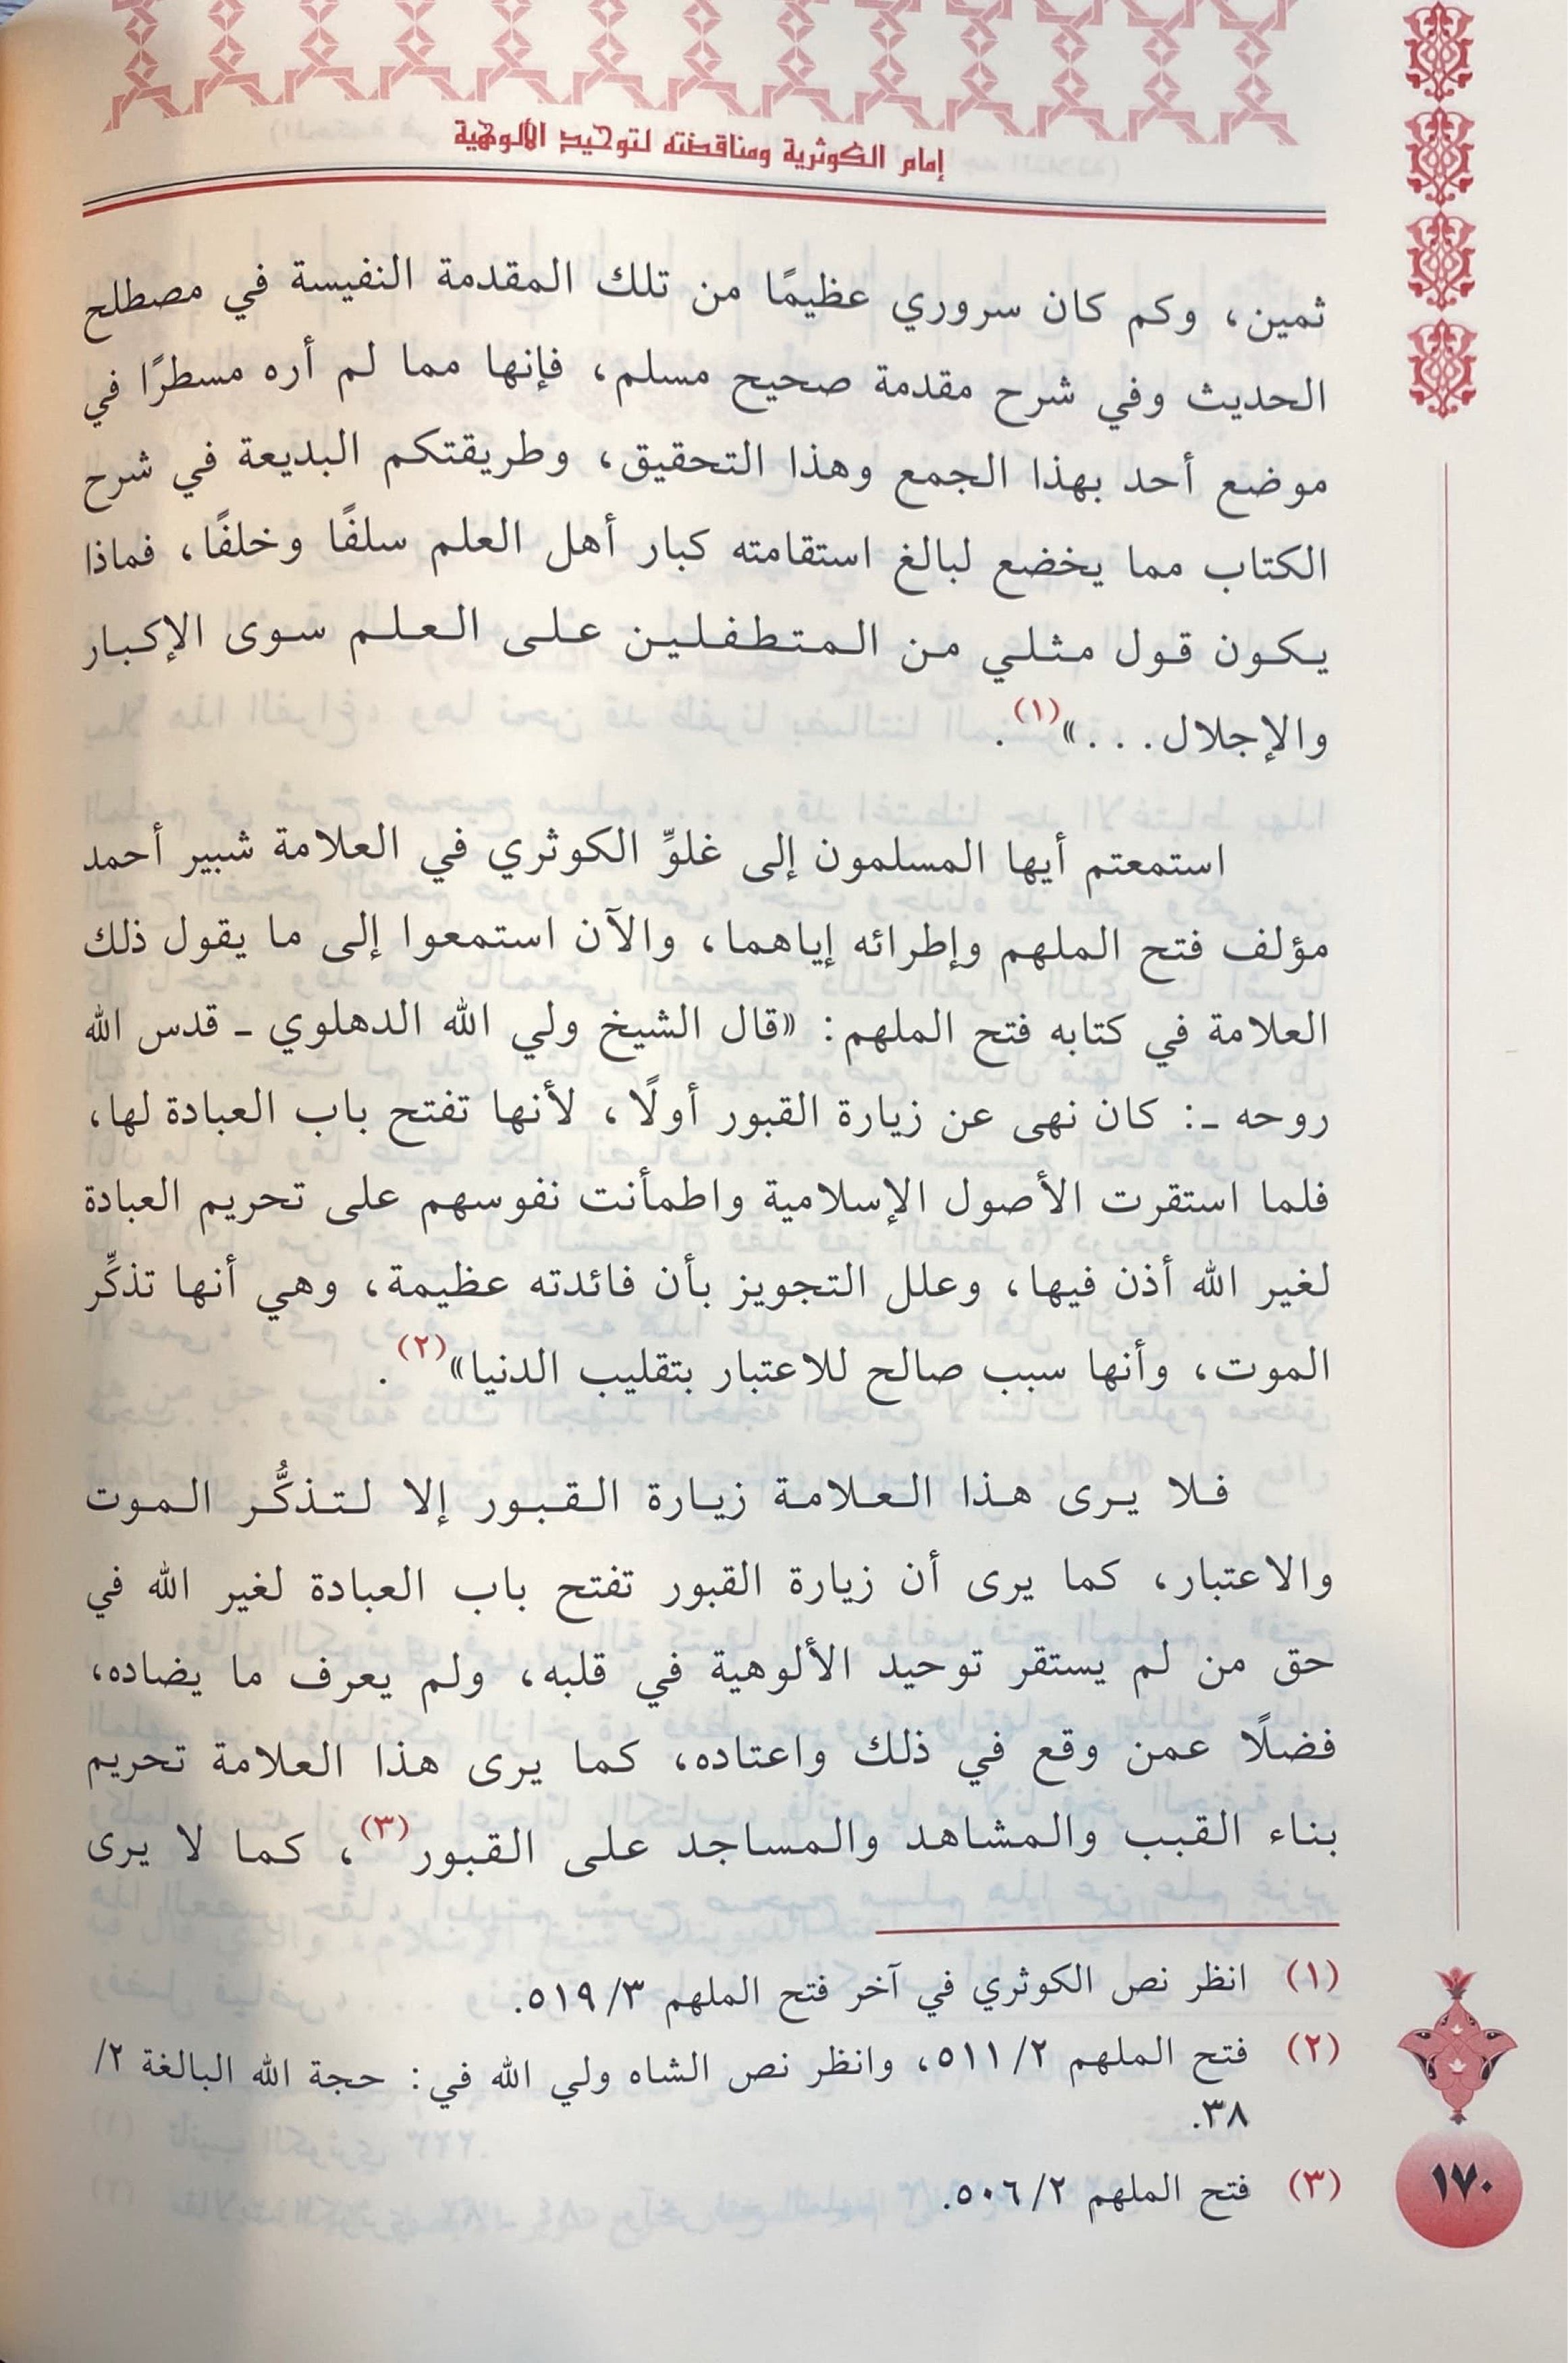 إمام الكوثرية ومناقضته لتوحيد الألوهية
ثمين، وكم كان سروري عظيمًا من تلك المقدمة النفيسة في مصطلح
الحديث وفي شرح مقدمة صحيح مسلم، فإنها مما لم أره مسطرًا في
موضع أحد بهذا الجمع وهذا التحقيق، وطريقتكم البديعة في شرح
الكتاب مما يخضع لبالغ استقامته كبار أهل العلم سلفًا وخلفًا، فماذا
يكون قول مثلي من المتطفلين على العلم سوى الإكبار
والإجلال...»(١).
استمعتم أيها المسلمون إلى غلوِّ الكوثري في العلامة شبير أحمد
مؤلف فتح الملهم وإطرائه إياهما، والآن استمعوا إلى ما يقول ذلك
العلامة في كتابه فتح الملهم: «قال الشيخ ولي الله الدهلوي ـ قدس الله
روحه ـ: كان نهى عن زيارة القبور أولًا، لأنها تفتح باب العبادة لها،
فلما استقرت الأصول الإسلامية واطمأنت نفوسهم على تحريم العبادة
لغير الله أذن فيها، وعلل التجويز بأن فائدته عظيمة، وهي أنها تذكِّر
الموت، وأنها سبب صالح للاعتبار بتقليب الدنيا»(٢).
فلا يرى هذا العلامة زيارة القبور إلا لتذكُّر الموت
والاعتبار، كما يرى أن زيارة القبور تفتح باب العبادة لغير الله في
حق من لم يستقر توحيد الألوهية في قلبه، ولم يعرف ما يضاده،
فضلًا عمن وقع في ذلك واعتاده، كما يرى هذا العلامة تحريم
بناء القبب والمشاهد والمساجد على القبور(٣)، كما لا يرى
(١) انظر نص الكوثري في آخر فتح الملهم ٣/ ٥١٩.
(٢) فتح الملهم ٢/ ٥١١، وانظر نص الشاه ولي الله في: حجة الله البالغة ٢/
٣٨.
(٣) فتح الملهم ٢/ ٥٠٦.
١٧٠